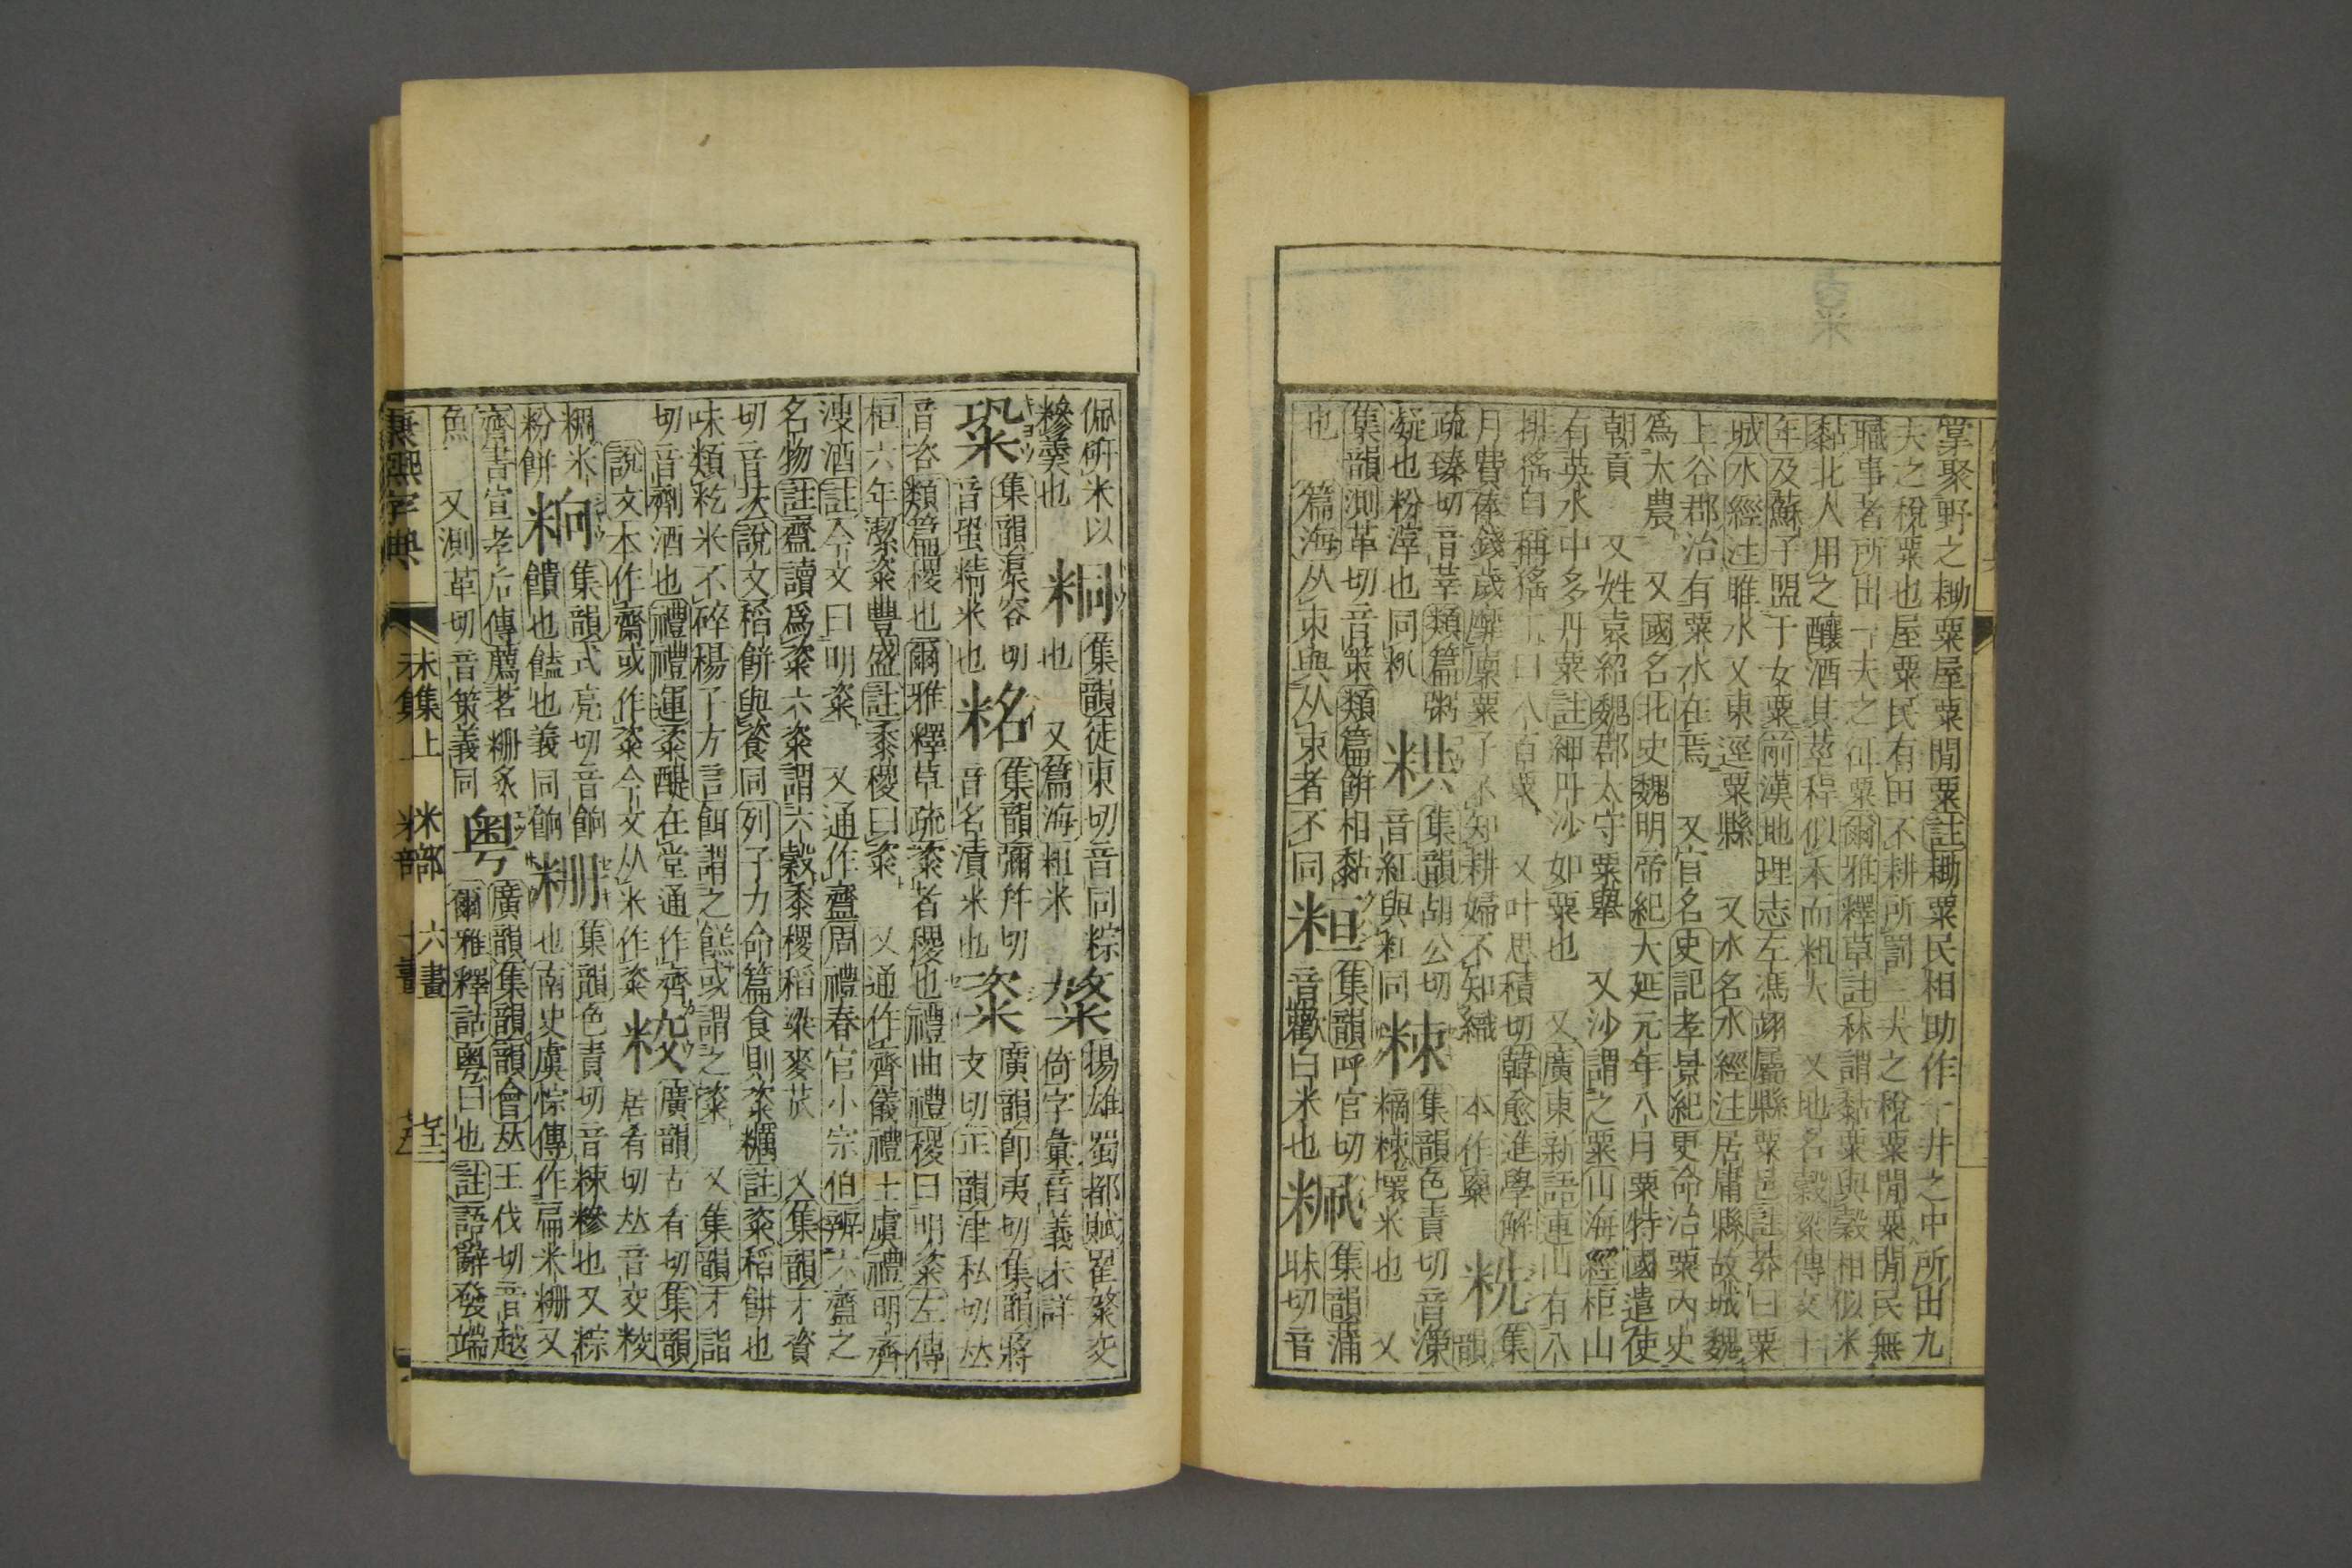 掌聚野之耡粟屋粟閒粟註耡粟民相助作一井之中所出九
夫之稅粟也屋粟民有田不耕所罰三夫之稅粟閒粟閒民無
職事者所出一夫之征粟爾雅釋草註秫謂黏粟與穀相似米
黏北人用之釀酒其莖稈似禾而粗大 又地名穀梁傳文十
年及蘇子盟于女粟前漢地理志左馮翊屬縣粟邑註莽曰粟
城水經注睢水又東逕粟縣 又水名水經注居庸縣故城魏
上谷郡治有粟水在焉 又官名史記孝景紀更命治粟內史
爲大農 又國名北史魏明帝紀大延元年八月粟特國遣使
朝貢 又姓袁紹魏郡太守粟舉 又沙謂之粟山海經柜山
有英水中多丹粟註細丹沙如粟也 又廣東新語連山有八
排猺自稱猺丁曰八百粟 又叶思積切韓愈進學解
月費俸錢歲靡廩粟子不知耕婦不知織 本作㮚 粩 集韻
疏臻切音莘類篇粥
凝也粉滓也同籸 粠 集韻胡公切
音紅與䉺同 粣 集韻色責切音溹
糏粣壞米也 又
集韻測革切音策類篇餠相黏
也 篇海从朿與从束者不同 䊐 集韻呼官切
音歡白米也 集韻蒲
昧切音
佩硏米以
糝羹也 粡 集韻徒東切音同粽
也 又篇海粗米 揚雄蜀都賦
侑字彙音義未詳
䂬 集韻渠容切
音蛩精米也 䊅 集韻彌幷切
音名漬米也 粢 廣韻卽夷切集韻將
支切正韻津私切𠀤
音咨類篇稷也爾雅釋草疏粢者稷也禮曲禮稷曰明粢左傳
桓六年潔粢豐盛註黍稷曰粢 又通作齊儀禮士虞禮明齊
溲酒註今文曰明粢 又通作齍周禮春官小宗伯辨六齍之
名物註齍讀爲粢六粢謂六穀黍稷稻粱麥苽 又集韻才資
切音茨說文稻餠與餈同列子力命篇食則粢糲註粢稻餠也
味類籺米不碎楊子方言餌謂之餻或謂之粢 又集韻才詣
切音劑酒也禮禮運粢醍在堂通作齊
說文本作齋或作粢今文从米作粢 䊔 廣韻古肴切集韻
居肴切𠀤音交糉
粡米 集韻式亮切音餉
粉餠 粣 集韻色責切音棟糝也又粽
饋也饁也義同餉 也南史虞悰傳作扁米粣又
齊書宣孝后傳薦茗粣炙
魚 又測革切音策義同 粤 廣韻集韻韻會𠀤王伐切音越
爾雅釋詁粤曰也註語辭發端
康熙字典 未集上 米部 六畫